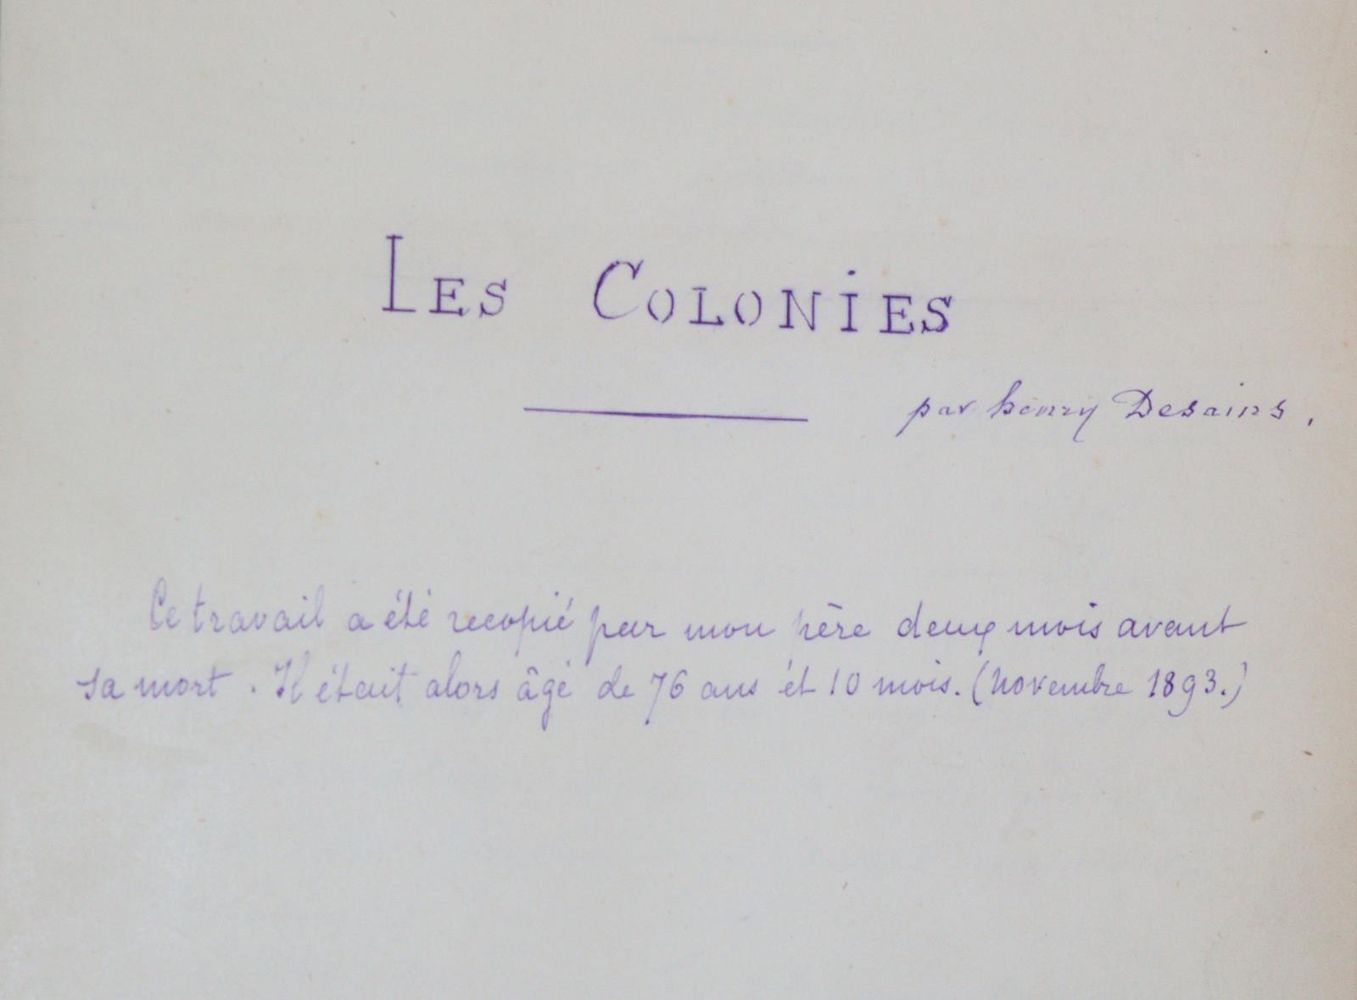 LES COLONIES
par henry Desains.
Ce travail a été recopié par mon père deux mois avant
sa mort. Il était alors âgé de 76 ans et 10 mois. (Novembre 1893.)